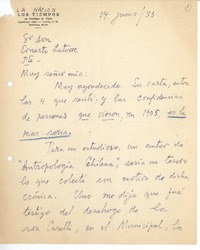 LA NACIÓN
LOS TIEMPOS
14 junio/53
Sr don
Ernesto Latorre
Pte
Muy señor mío:
Muy agradecido. Su carta, entre
las 4 que recibí; y las confidencias
de personas que vieron, en 1905, es la
mas seria.
Para un estudioso, un autor de
"Antropología Chilena", sería un tesoro
lo que colecta con motivo de dicha
crónica. Uno me dijo que fué
testigo del desahogo de la
en el Municipal, la